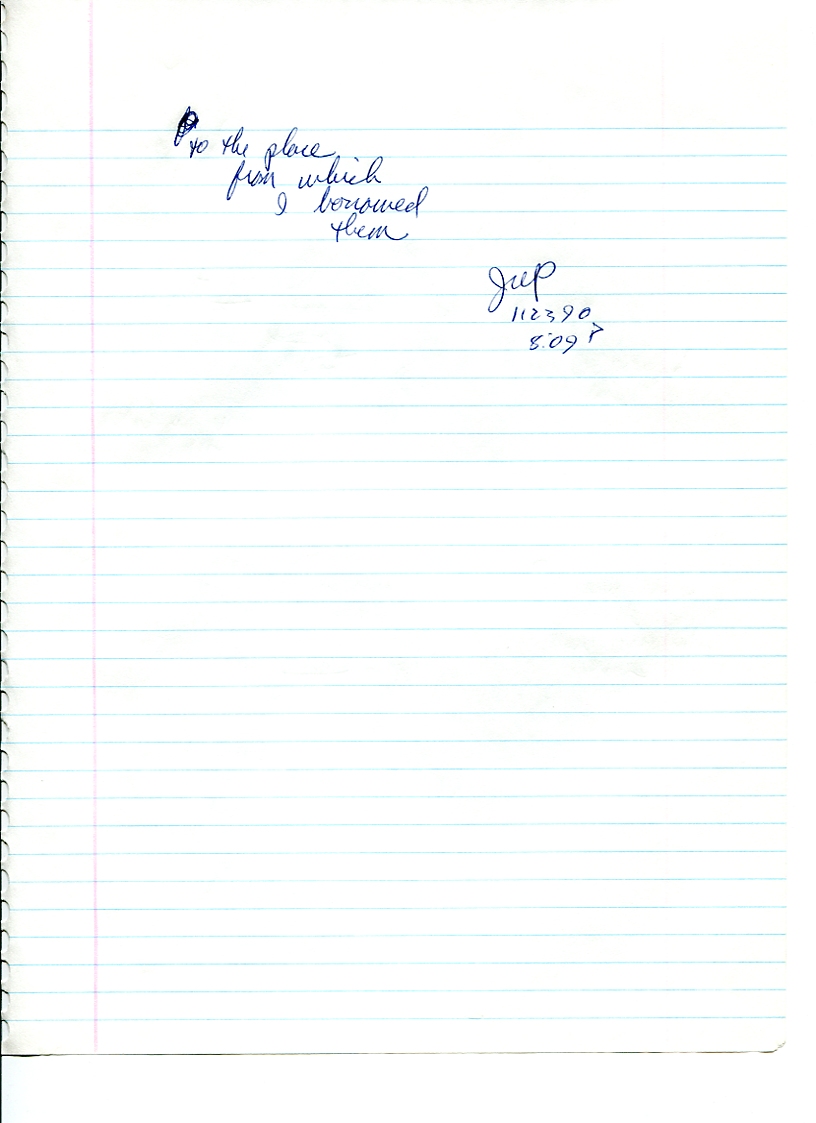 to the place
from which
I borrowed
them
JWP
112390
8:09 P